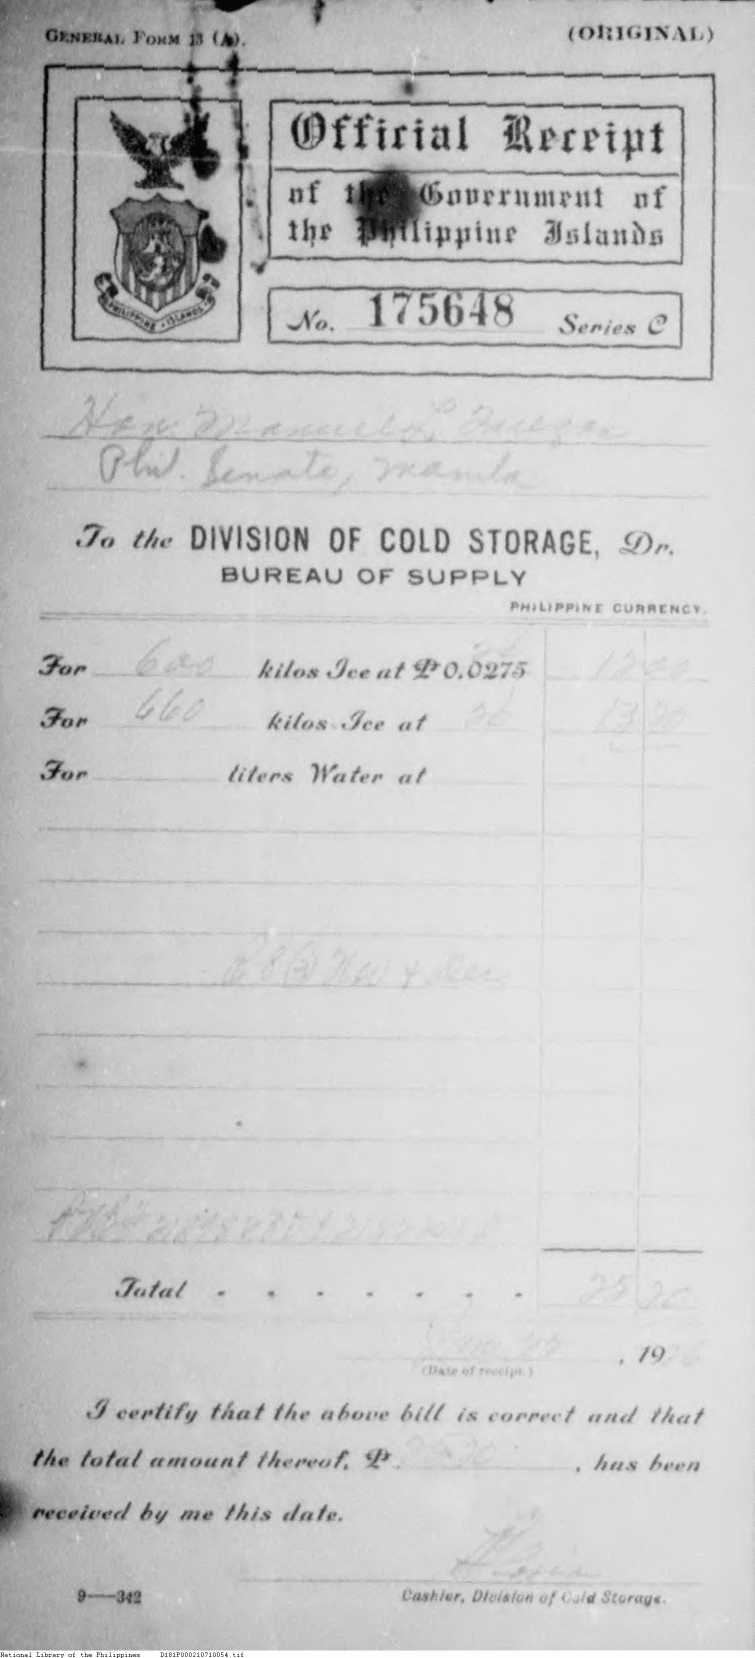 GENERAL FORM 13 (A).
(ORIGINAL)
PHILIPPINE ISLANDS
Official Receipt
of the Government of
the Philippine Islands
No. 175648 Series C
Hon. Manuel L. Quezon
Phil. Senate, Manila
To the DIVISION OF COLD STORAGE, Dr.
BUREAU OF SUPPLY
PHILIPPINE CURRENCY.
For 600 kilos Ice at ₱0.0275 12 00
For 660 kilos Ice at 20 13 20
For liters Water at
Nov & Dec
Total . . . . . . . 25 20
, 19
(Date of receipt.)
I certify that the above bill is correct and that
the total amount thereof, ₱ 25.20 , has been
received by me this date.
9—342
Cashier, Division of Cold Storage.
National Library of the Philippines D181P000210710054.tif